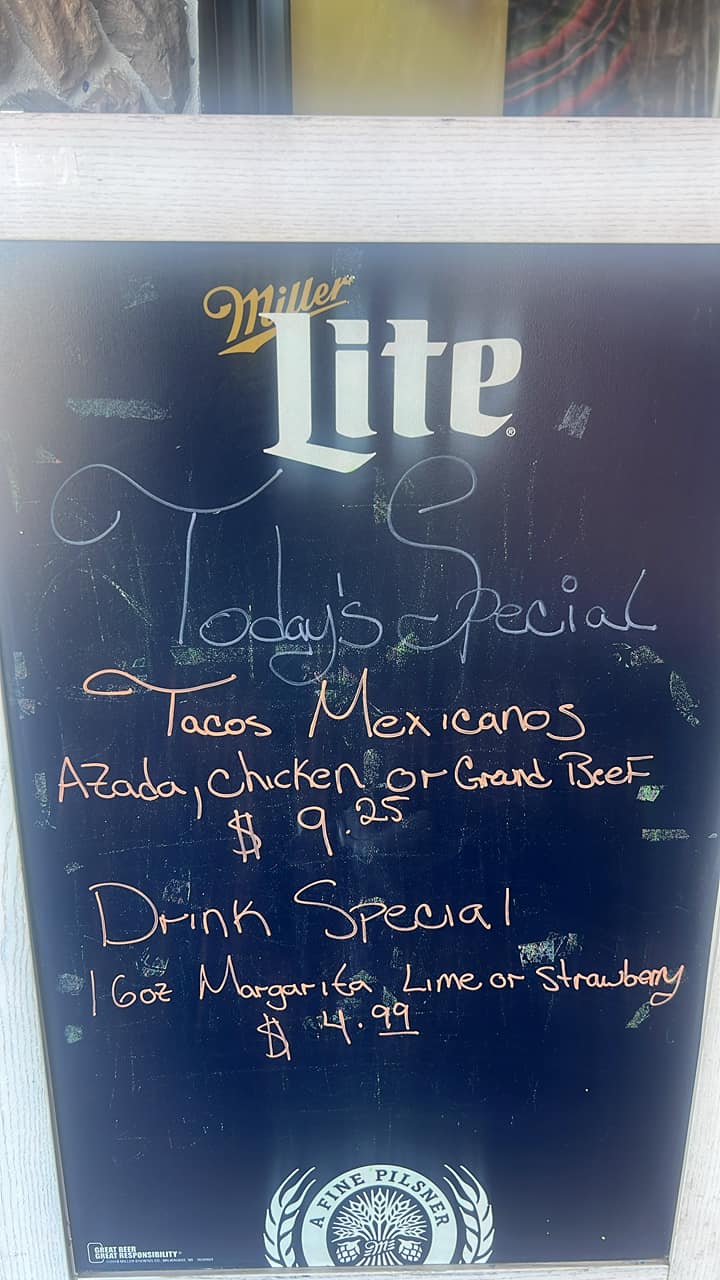 Miller
Lite
Today's Special
Tacos Mexicanos
Azada, Chicken or Grand Beef
$ 9.25
Drink Special
16oz Margarita Lime or Strawberry
$ 4.99
A FINE PILSNER
GREAT BEER
GREAT RESPONSIBILITY